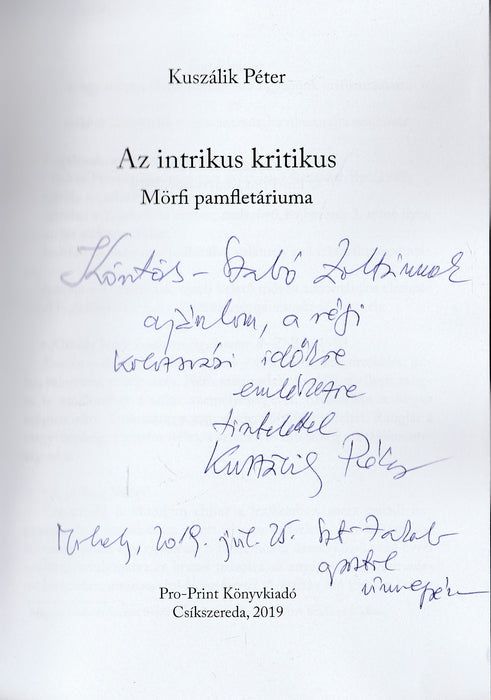 Kuszálik Péter
Az intrikus kritikus
Mörfi pamfletáriuma
Köntös-Szabó Zoltánnak
ajánlom, a régi
kolozsvári időkre
emlékezve
tisztelettel
Kuszálik Péter
Mvhely, 2019. júl. 25. Szt-Jakab
apostol
ünnepén
Pro-Print Könyvkiadó
Csíkszereda, 2019